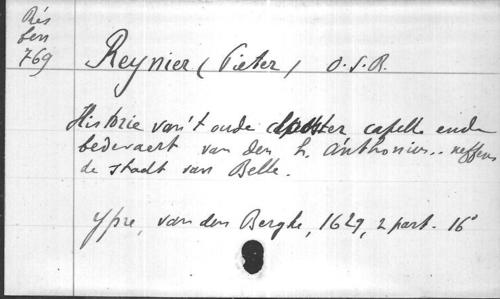 Rés
fen
769
Reynier (Pieter) O.S.R.
Historie van't oude clooster capelle ende
bedevaert van den h. Anthonius.. neffens
de stadt van Belle.
Ypre, van den Berghe, 1629, 2 part. 16°